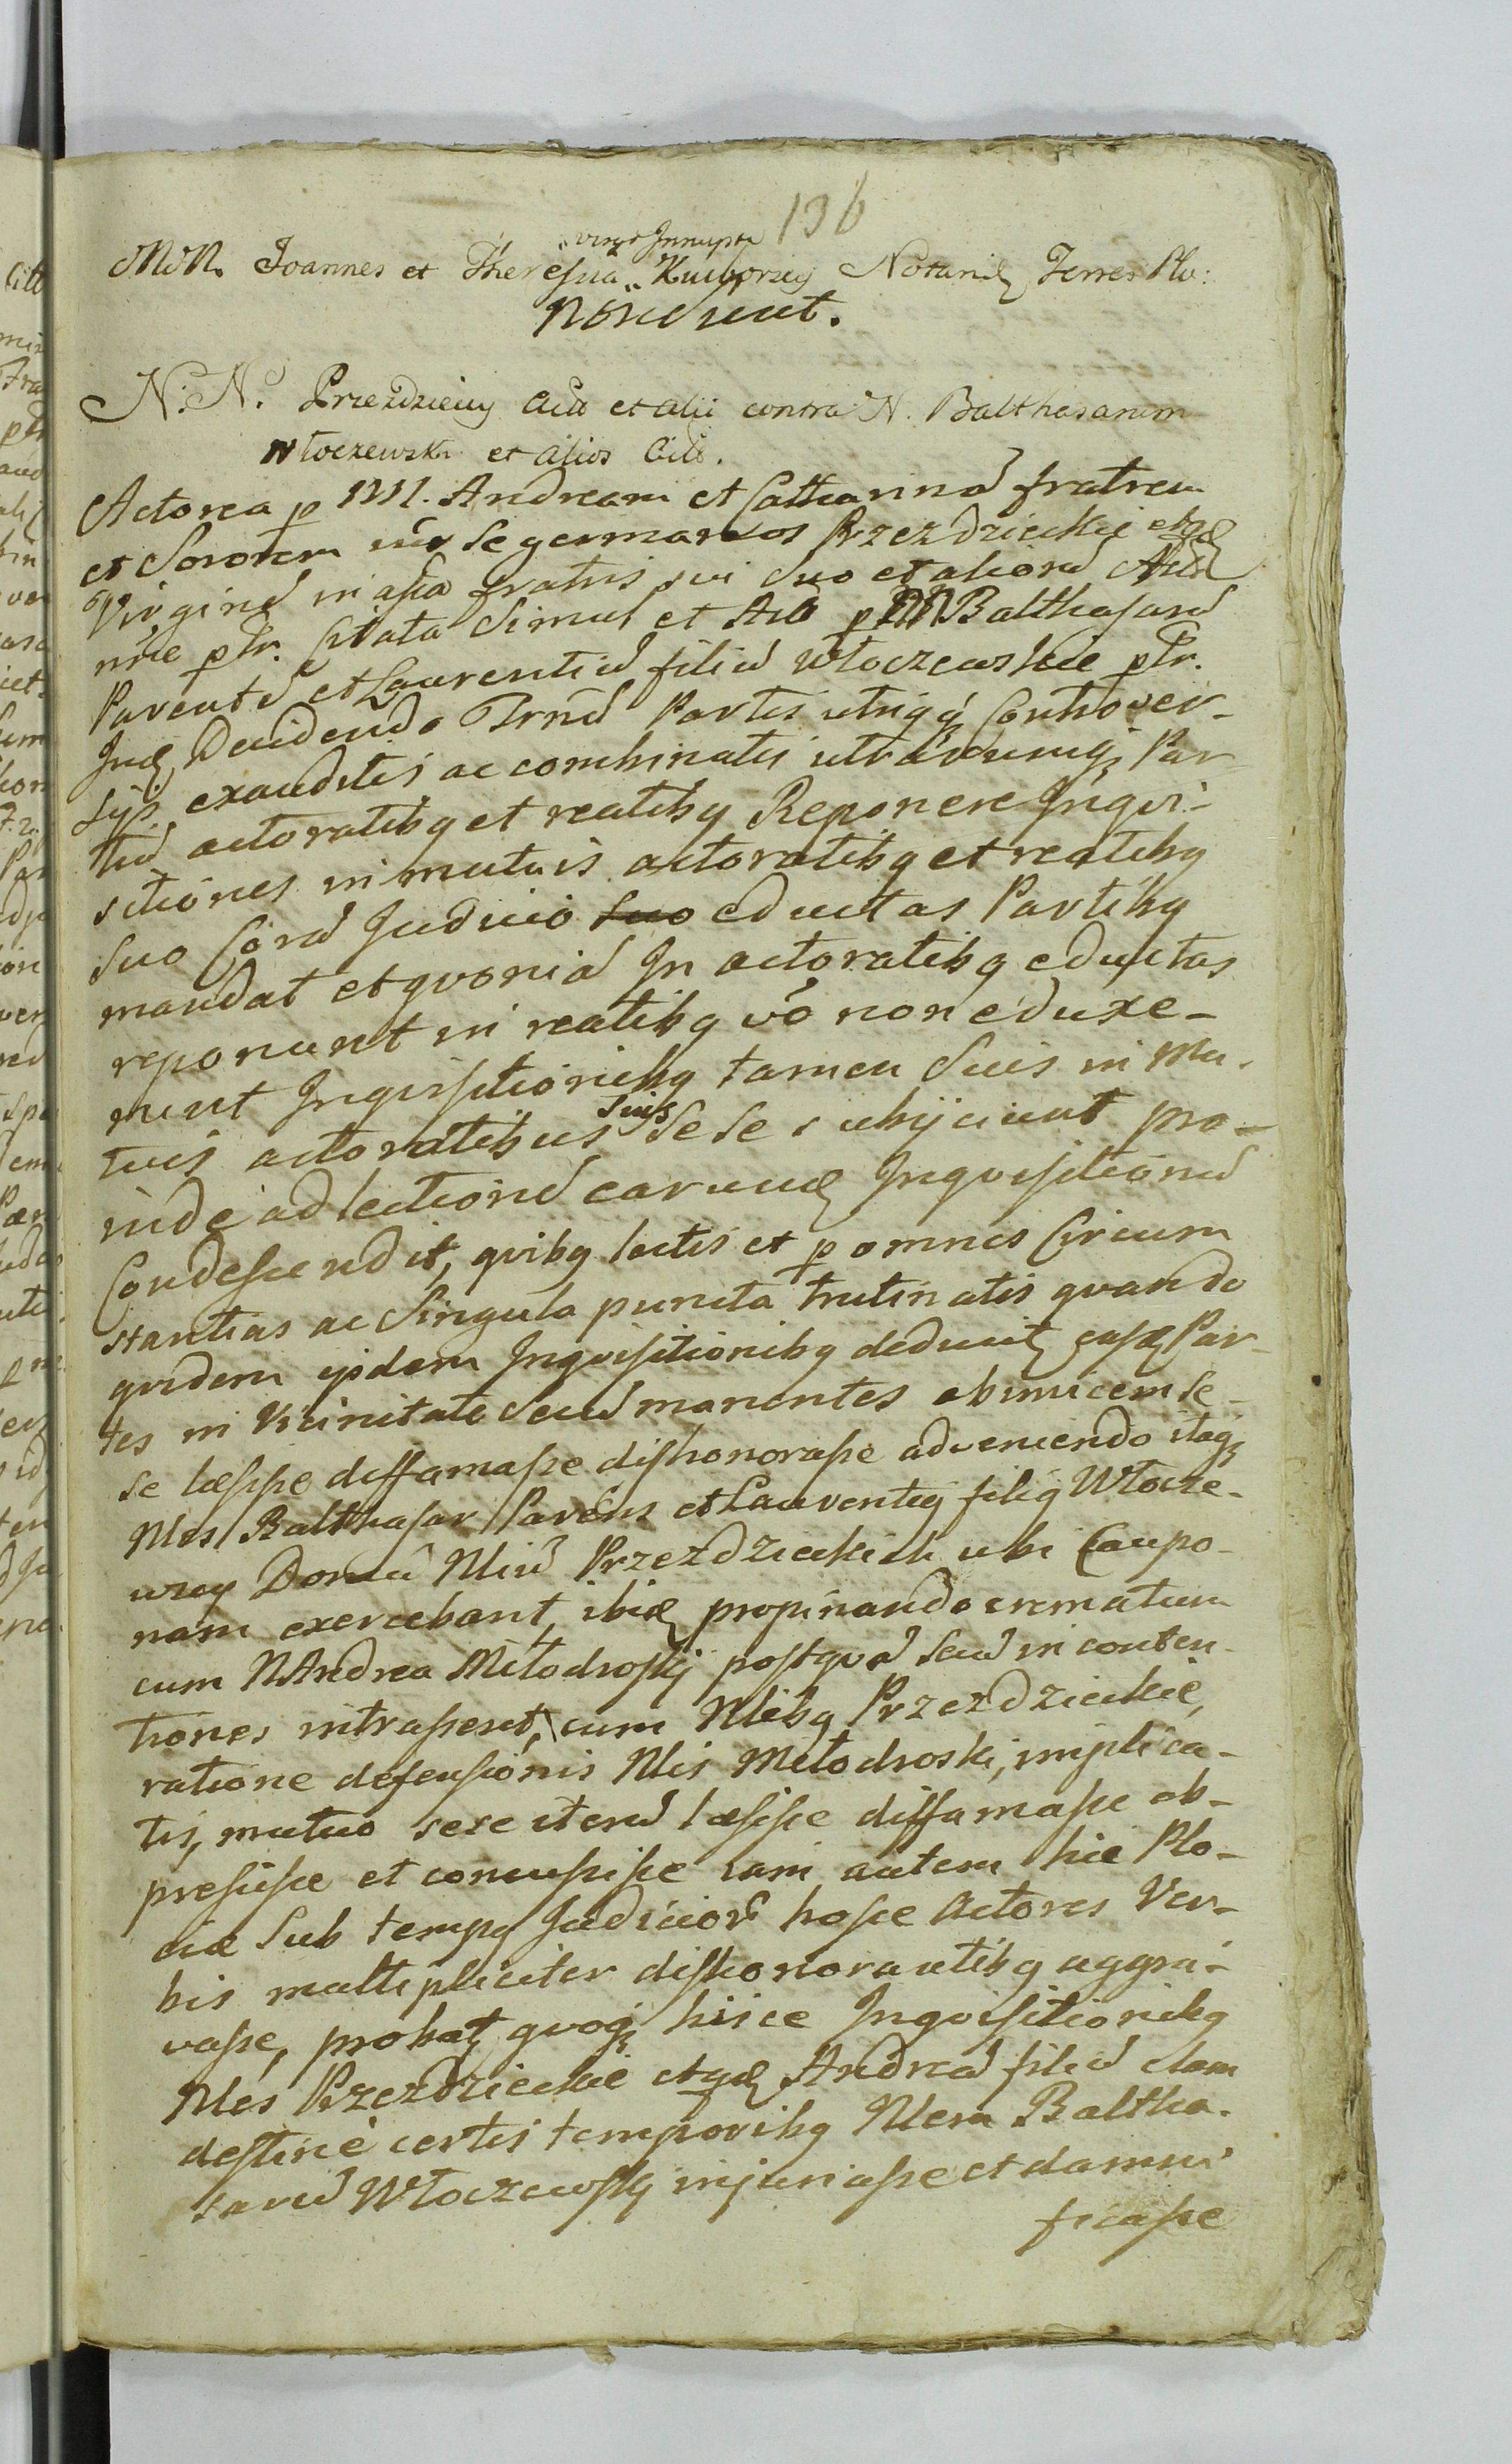 136
virgo Innupta
MM. Joannes et Theresia Kuczborscy Notarii Terres Plo:
Nõne sunt.
N. N. Przezdziecy Acto et alii contra N. Balthasarum
Włoczewski et alios Cito.
Actorea p NN. Andream et Catharinã fratrem
et Sororem inr Se germanos Przezdzieckie etqɜ
Virginẽ in assa fratris sui Suo et aliorũ
nrie ptr. Citata Simul et Acto p NN Balthasarũ
Parentẽ et Laurentiũ filiũ Włoczewskie ptr.
Decidendo Trnũ Partis utriqɜ Controver-
sys exauditis ac combinatis utrarumqɜ Par
tiũ actoratibq et reatibq Reponere Inqvi-
sitiones in mutuis actoratibq et reatibq
Suo Corã Judicio Suo eductas Partibq
mandat et qvoniã In actoratibq eductas
reponunt in reatibq vó non eduxe-
runt Inqvisitionibq tamen Suis in Mu-
tuis actoratibus suis Sese subijciunt pro-
inde ad lectionẽ earumɜ Inqvisitionũ
Condescendit, qvibq lectis et p omnes Circum
stantias ac Singula puncta trutinatis qvando
qvidem ijsdem Inqvisitionibq deducitɜ Par-
tes in Vicinitate Secũ manentes abinvicem Se-
se læsisse diffamasse dishonorasse adveniendo itaqɜ
Nles Balthasar Parens et Laurentiq filiq Włocze-
wscy Domũ Nliũ Przezdzieckich ubi Caupo-
nam exercebant, ibiɜ propinando crematum
cum N Andrea Miłodroski postqvã Secũ in conten-
tiones intrassent, cum Nlibq Przezdzieckie,
ratione defensionis Nlis Miłodroski, implica-
tis, mutuo sese iterũ læsisse diffamasse ob-
pressisse et concussisse iam autem hic Plo-
ciæ Sub tempq Judiciorũ hosce Actores Ver-
bis multipliciter dishonorantibq aggra-
vasse, probatɜ qvoqɜ hisce Inqvisitionibq
Nles Przezdzieckie etqɜ Andreã filiũ clan
destine certis temporibq Nlem Baltha-
sarũ Włoczewsky injuriasse et damni
ficasse